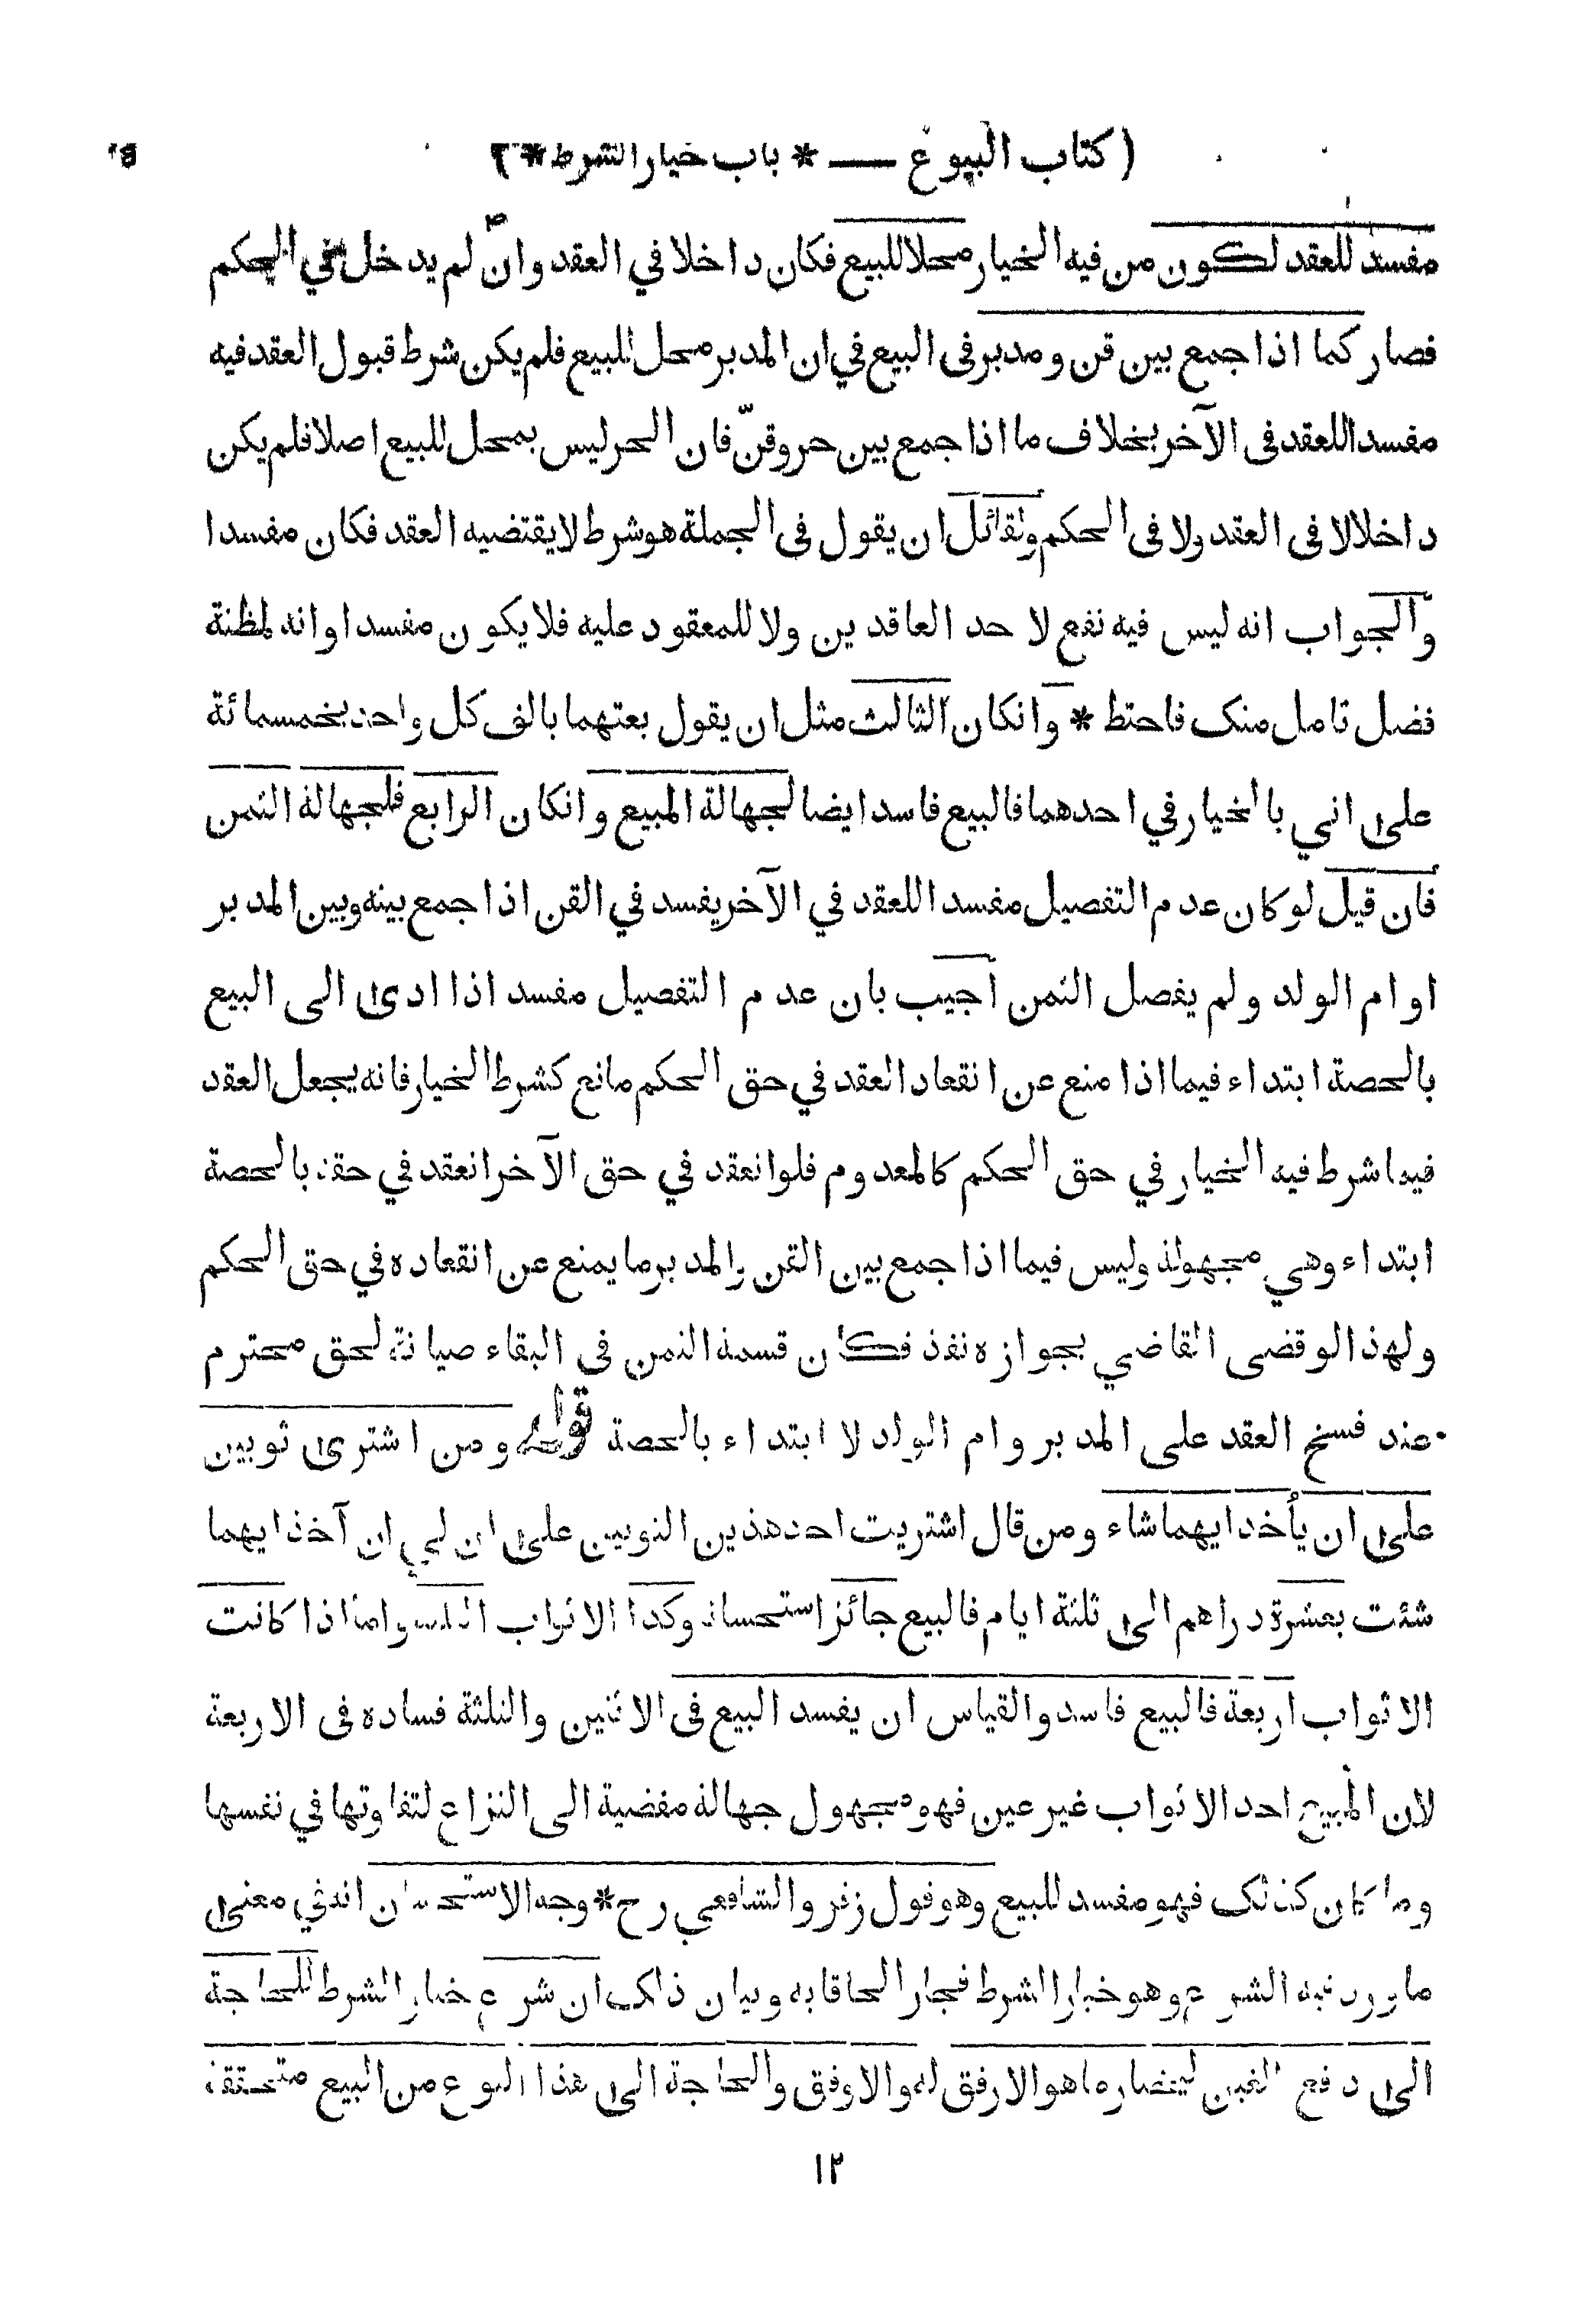 ( كتاب البيوع — * باب خيار الشرط *
مفسد للعقد لكون من فيه الخيار محلا للبيع فكان داخلا في العقد وان لم يدخل في الحكم
فصار كما اذا جمع بين قن ومدبر في البيع في ان المدبر محل للبيع فلم يكن شرط قبول العقد فيه
مفسدا للعقد في الآخر بخلاف ما اذا جمع بين حر وقنّ فان الحر ليس بمحل للبيع اصلا فلم يكن
داخلا لا في العقد ولا في الحكم ولقائل ان يقول في الجملة هو شرط لا يقتضيه العقد فكان مفسدا
والجواب انه ليس فيه نفع لاحد العاقدين ولا للمعقود عليه فلا يكون مفسدا وانه لمظنة
فضل تامل منك فاحتط * وانكان الثالث مثل ان يقول بعتهما بالف كل واحد بخمسمائة
على اني بالخيار في احدهما فالبيع فاسد ايضا لجهالة المبيع وانكان الرابع فلجهالة الثمن
فان قيل لو كان عدم التفصيل مفسدا للعقد في الآخر يفسد في القن اذا جمع بينه وبين المدبر
او ام الولد ولم يفصل الثمن أجيب بان عدم التفصيل مفسد اذا ادى الى البيع
بالحصة ابتداء فيما اذا منع عن انقعاد العقد في حق الحكم مانع كشرط الخيار فانه يجعل العقد
فيما شرط فيه الخيار في حق الحكم كالمعدوم فلو انعقد في حق الآخر انعقد في حقه بالحصة
ابتداء وهي مجهولة وليس فيما اذا جمع بين القن والمدبر ما يمنع عن انقعاده في حق الحكم
ولهذا لو قضى القاضي بجوازه نفذ فكان قسمة الثمن في البقاء صيانة لحق محترم
عند فسخ العقد على المدبر وام الولد لا ابتداء بالحصة قوله ومن اشترى ثوبين
على ان يأخذ ايهما شاء ومن قال اشتريت احد هذين الثوبين على ان لي ان آخذ ايهما
شئت بعشرة دراهم الى ثلثة ايام فالبيع جائز استحسانا وكذا الاثواب الثلثة واما اذا كانت
الاثواب اربعة فالبيع فاسد والقياس ان يفسد البيع في الاثنين والثلثة فساده في الاربعة
لان المبيع احد الاثواب غير عين فهو مجهول جهالة مفضية الى النزاع لتفاوتها في نفسها
وما كان كذلك فهو مفسد للبيع وهو قول زفر والشافعي رح * وجه الاستحسان انه في معنى
ما ورد به الشرع وهو خيار الشرط فجاز الحاقا به وبيان ذلك ان شرع خيار الشرط للحاجة
الى دفع الغبن ليختار ما هو الارفق له والاوفق والحاجة الى هذا النوع من البيع متحققة
١٢